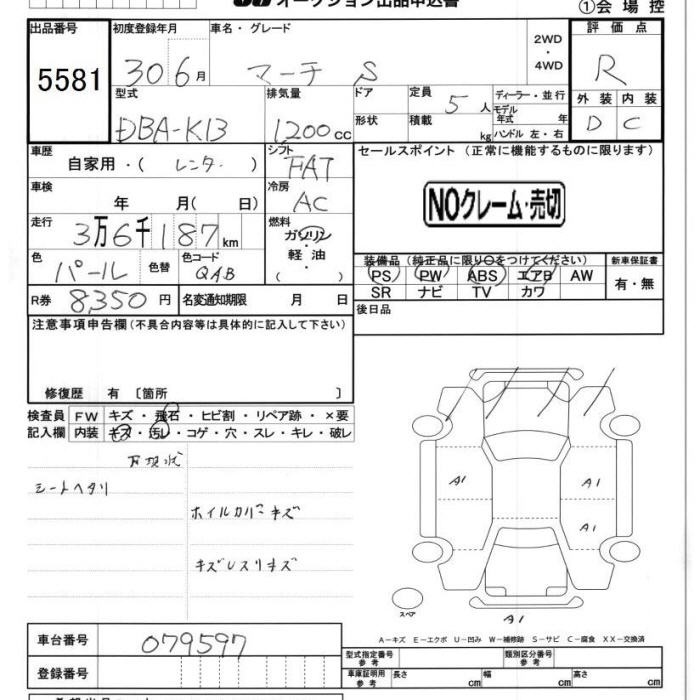 オークション出品申込書
①会場控
出品番号 初度登録年月 車名・グレード 評価点
5581
30 6月 マーチ S 2WD ・ 4WD R
型式 排気量 ドア 定員 5人 ディーラー・並行 外装 内装
DBA-K13 1200cc 形状 積載 kg モデル年式 年 D C
ハンドル 左・右
車歴 シフト セールスポイント (正常に機能するものに限ります)
自家用・( レンタ. ) FAT
車検 冷房
年 月( 日) AC
NOクレーム・売切
走行 燃料
3万6千187km ガソリン・軽油 ( )
色 色替 色コード 装備品(純正品に限り○をつけてください) 新車保証書
パール QAB PS PW ABS エアB AW 有・無
SR ナビ TV カワ
R券 8,350円 名変通知期限 月 日 後日品
注意事項申告欄(不具合内容等は具体的に記入して下さい)
修復歴 有 〔箇所 〕
検査員 FW キズ・飛石・ヒビ割・リペア跡・×要
記入欄 内装 キズ・汚レ・コゲ・穴・スレ・キレ・破レ
シートヘタリ
ホイルカバーキズ
A1 A1
A1
スペア
A1
A-キズ E-エクボ U-凹み W-補修跡 S-サビ C-腐食 XX-交換済
車台番号 079597
型式指定番号 参考 類別区分番号 参考
登録番号
車庫証明用 参考 長さ cm 幅 cm 高さ cm